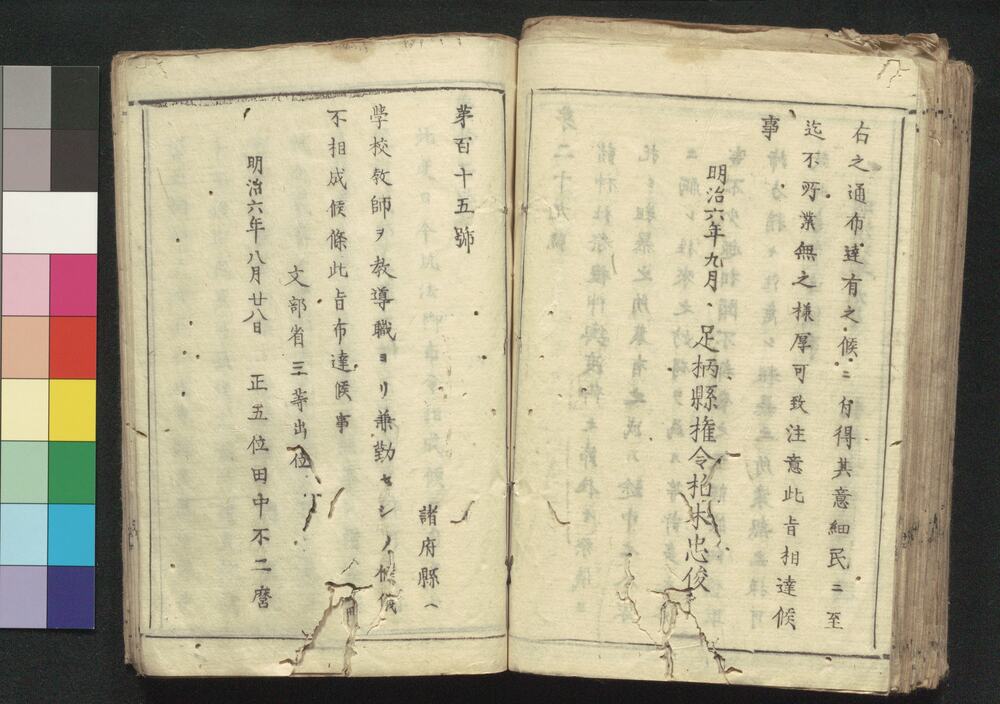 右之通布達有之候ニ付得其意細民ニ至
迄不所業無之様厚可致注意此旨相達候
事
明治六年九月、足柄縣権令柏木忠俊
第百十五號
諸府縣ヘ
學校教師ヲ教導職ヨリ兼勤セシノ候儀
不相成候條此旨布達候事
文部省三等出仕
明治六年八月廿八日 正五位田中不二麿